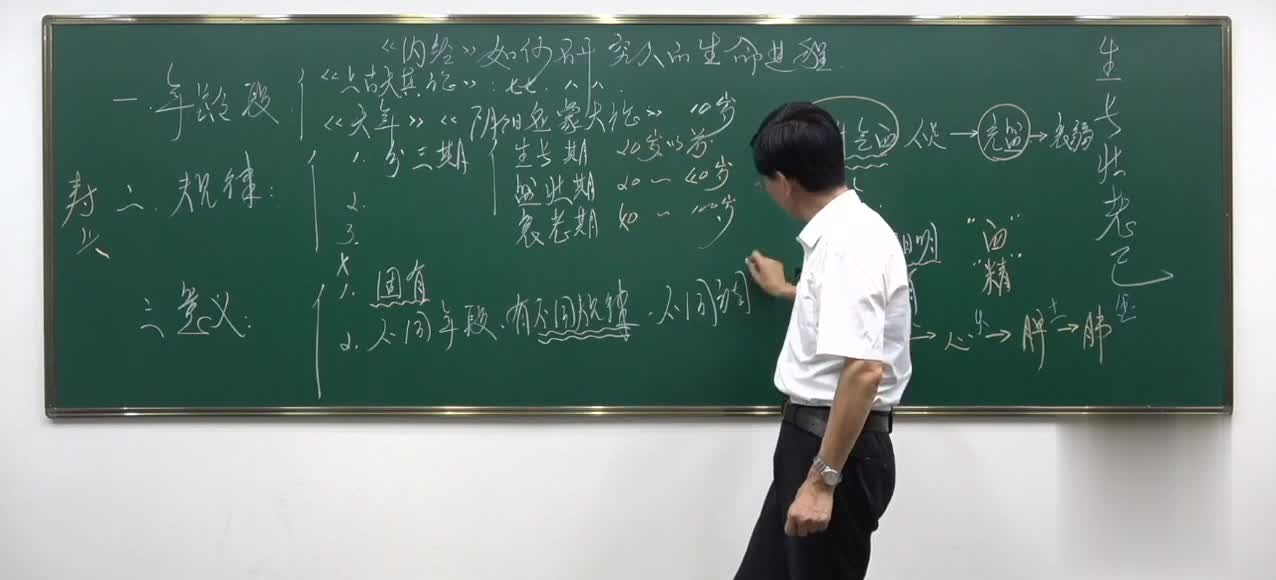 《内经》如何研究人的生命进程
一.年龄段
《上古天真论》:七七.八八.
《天年》《阴阳应象大论》 10岁
二.规律:
1.分三期 生长期 20岁以前
2. 盛壮期 20~40岁
3. 衰老期 40~100岁
寿
三 意义:
1.固有
2.不同年段、有不同规律.不同
气血
→充盛→衰弱
明
"面"
"精"
→心→脾→肺
生长壮老已